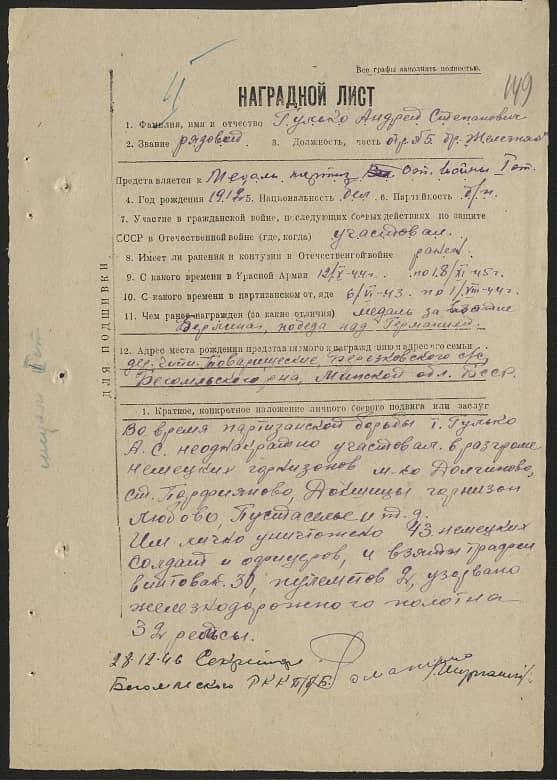 Все графы заполнять полностью.
149
НАГРАДНОЙ ЛИСТ
1. Фамилия, имя и отчество Гулько Андрей Степанович
2. Звание рядовой 3. Должность, часть отр. №5 бр. Железняк
Представляется к Медаль партиз. От. войны I ст.
4. Год рождения 1912 5. Национальность бел 6. Партийность б/п.
7. Участие в гражданской войне, последующих боевых действиях по защите
СССР в Отечественной войне (где, когда) участвовал.
8. Имеет ли ранения и контузии в Отечественгой войне ранен
9. С какого времени в Красной Армии 12/X-44г. по 18/XI-45г.
10. С какого времени в партизанском от, яде 6/VI-43 по 1/VII-44г.
11. Чем ранее награжден (за какие отличия) медаль за взятие
Берлина, победа над Германией.
12. Адрес места рождения представляемого к награжд нию и адрес его семьи
дер. Товарищеские, Березковского с/с,
Бегомльского р-на, Минской обл. БССР.
1. Краткое, конкретное изложение личного боевого подвига или заслуг
Во время партизанской борьбы т. Гулько
А.С. неоднакратно участвовал в разгроме
немецких горнизонов м-ко Долгиново,
ст. Парафияново, Докшицы горнизон
Любово, Пустаселье и т.д.
Им лично уничтожено 43 немецких
солдат и офицеров, и взяты трофеи
винтовок 30, пулеметов 2, узорвано
железнодорожного полотна
32 рельсы.
28.12.46 Секретарь
Бегомльского РК КП/б/Б.
ДЛЯ ПОДШИВКИ.